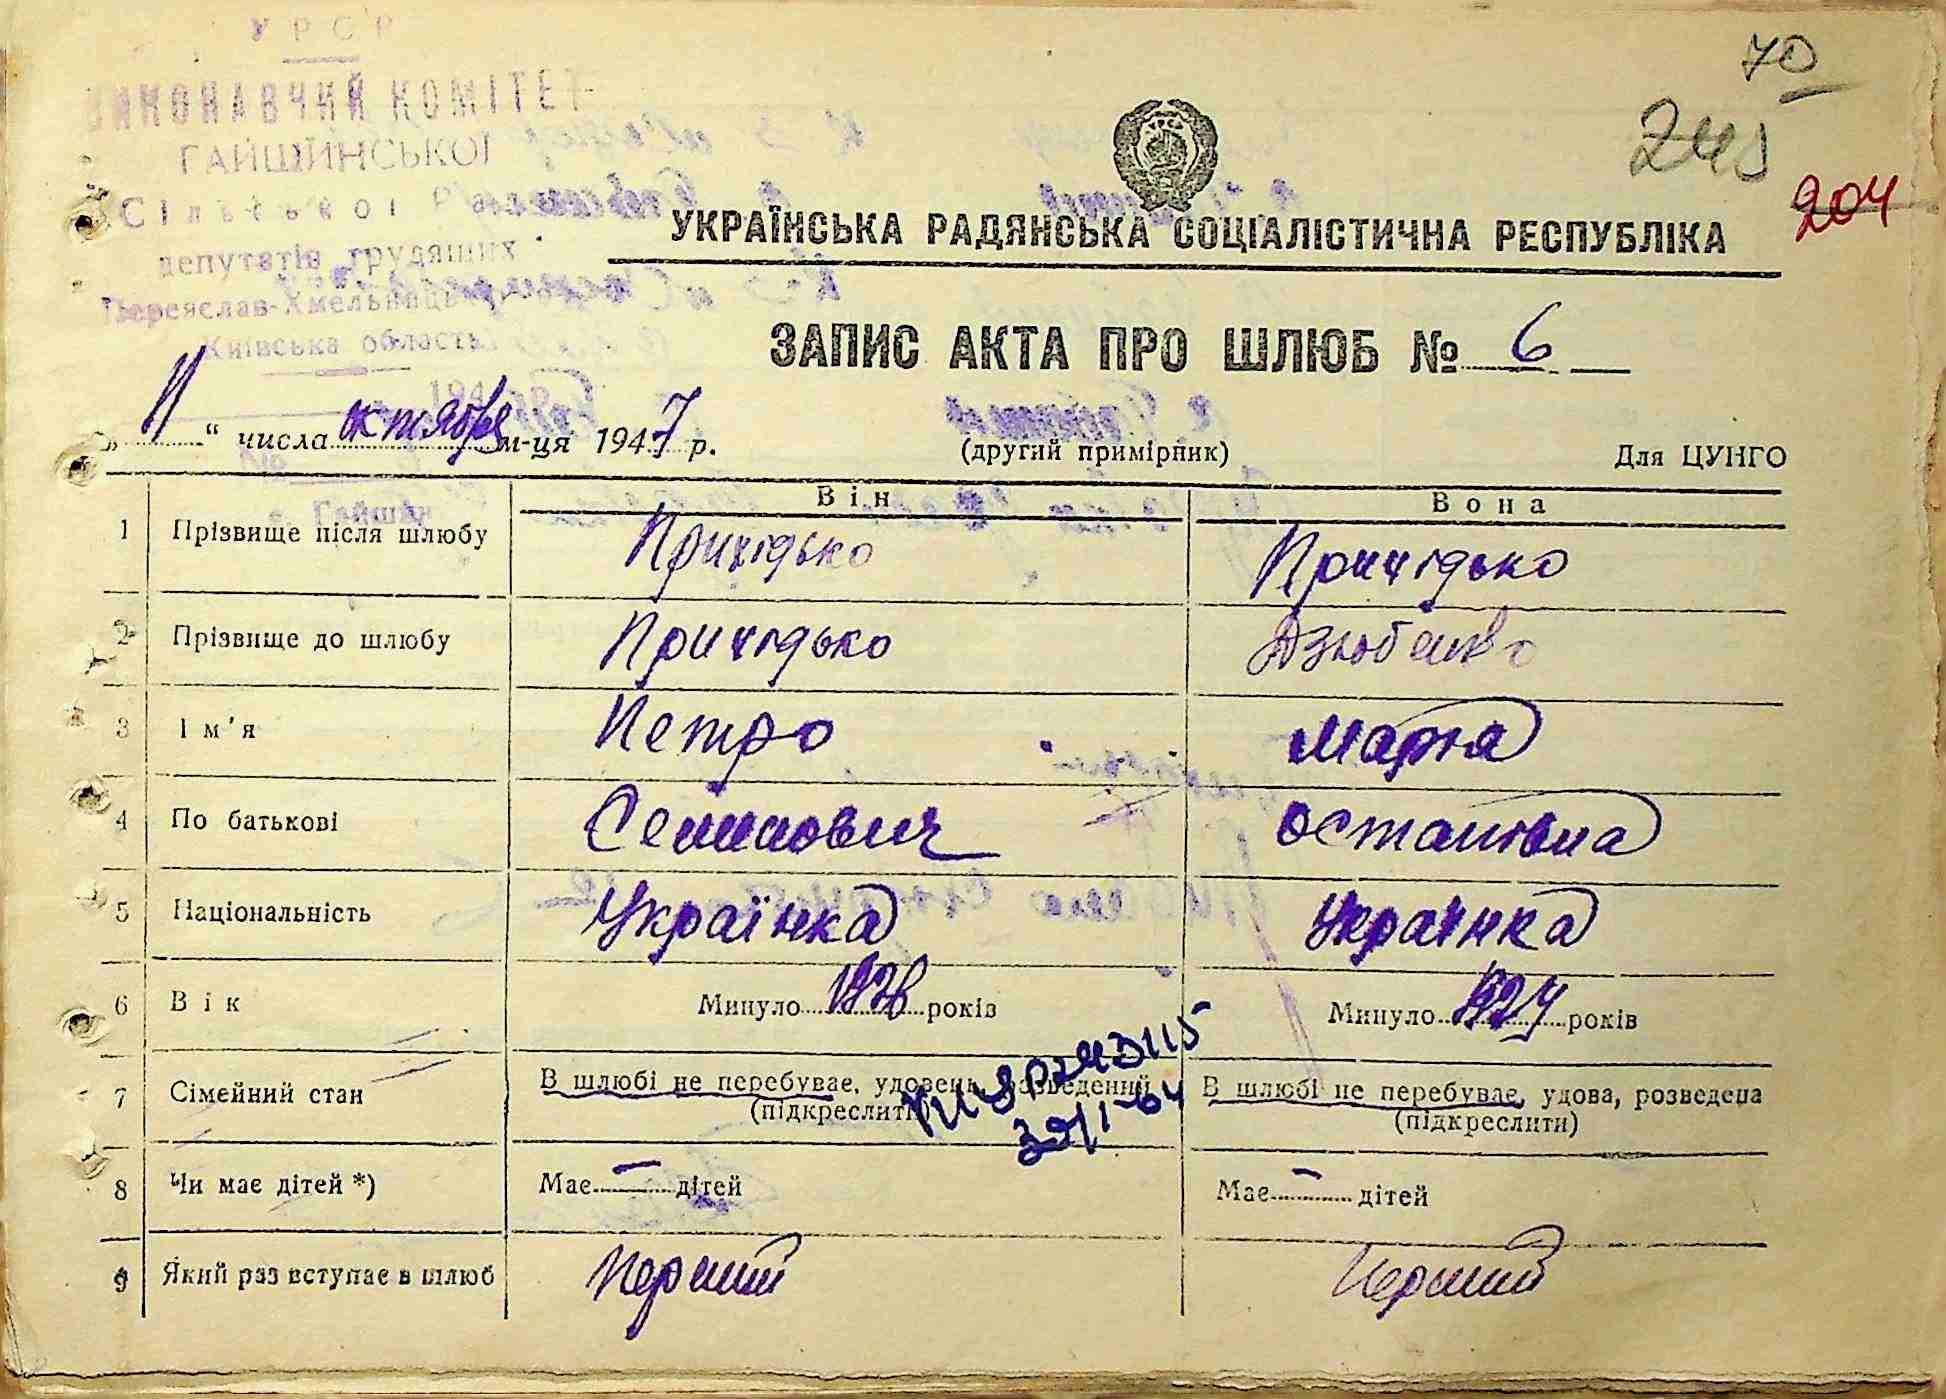 УРСР
ВИКОНАВЧИЙ КОМІТЕТ
ГАЙШИНСЬКОЇ
Сільської Ради
депутатів трудящих
Переяслав-Хмельницьк
Київська область
194
с. Гайшин
70
245
204
УКРАЇНСЬКА РАДЯНСЬКА СОЦІАЛІСТИЧНА РЕСПУБЛІКА
ЗАПИС АКТА ПРО ШЛЮБ № 6
„11“ числа октября м-ця 1947 р.
(другий примірник)
Для ЦУНГО
Він Вона
1 Прізвище після шлюбу Прихідько Прихідько
2 Прізвище до шлюбу Прихідько Дзюбенко
3 Ім'я Петро Марія
4 По батькові Семинович Остаповна
5 Національність Українка Українка
6 Вік Минуло 1928 років Минуло 1924 років
7 Сімейний стан В шлюбі не перебуває, удовець, розведений (підкреслити) В шлюбі не перебуває, удова, розведена (підкреслити)
8 Чи має дітей *) Має — дітей Має — дітей
9 Який раз вступає в шлюб Перший Перший